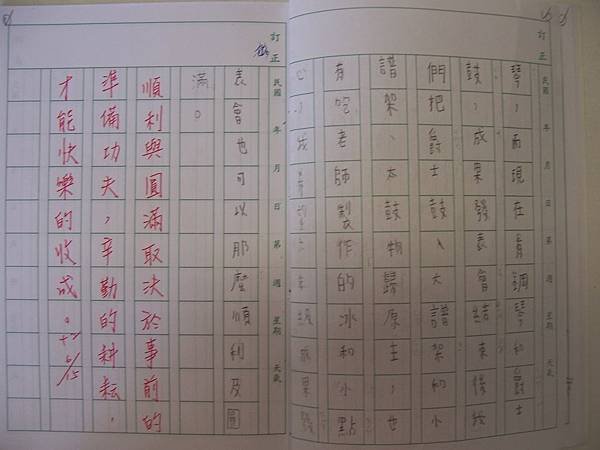 訂正 民國 年 月 日 第 週 星期 天氣
琴，而現在有鋼琴和爵士
鼓，成果發表會結束後我
們把爵士鼓、大譜架和小
譜架、太鼓物歸原主，也
有吃老師製作的冰和小點
心，成果發
訂正 民國 年 月 日 第 週 星期 天氣
表會也可以那麼順利及圓
滿。
順利與圓滿取決於事前的
準備功夫，辛勤的耕耘，
才能快樂的收成。6/15